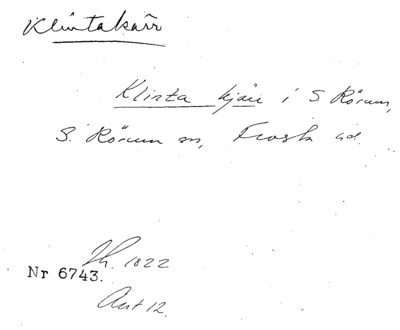 Klintakärr
Klinta kjär i S Rörum,
S. Rörum sn, Frosta hd.
Jh. 1822
Nr 6743.
Akt 12.